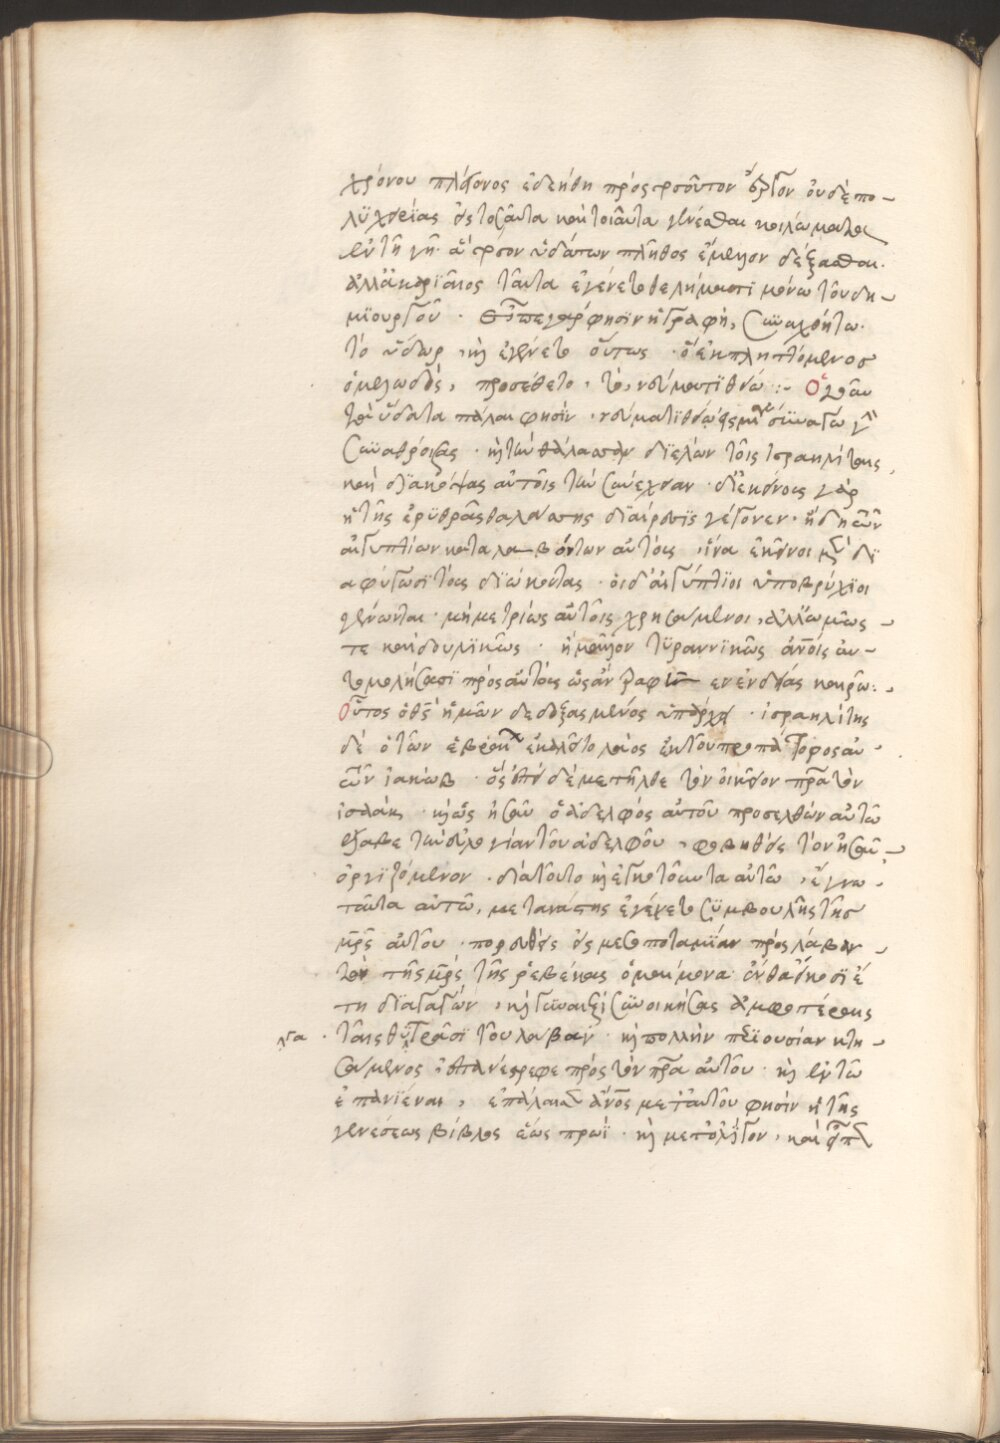 χρόνου πλείονος ἐδεήθη πρὸς τοσοῦτον ἔργον οὐδὲ πο-
λυχειρίας εἰς τοσαῦτα καὶ τοιαῦτα γενέσθαι κοιλώματα
ἐν τῇ γῇ ἃ τόσον ὑδάτων πλῆθος ἔμελλον δέξασθαι.
ἀλλ' ἀκαριαίως ταῦτα ἐγένετο θελήματι μόνω τοῦ δη-
μιουργοῦ. φησὶν ἡ γραφὴ, συναχθήτω
τὸ ὕδωρ, κ(αὶ) ἐγένετο οὕτως. ὃ ἐκπληττόμενος
ὁ μελωδὸς, προσέθετο, τὸ, νεύματι θείω :- Ὁ
τὰ ὕδατα πάλαι φησὶν, νεύματι θείω εἰς μίαν συναγωγὴν
συναθροίσας. κ(αὶ) τὴν θάλασσαν διελὼν τοῖς ἰσραηλίταις,
καὶ διακόψας αὐτοῖς τὴν συνέχειαν. δι' ἐκείνους γὰρ
ἡ τῆς ἐρυθρᾶς θαλάσσης διαίρεσις γέγονεν. ἤδη τῶν
αἰγυπτίων καταλαβόντων αὐτοὺς, ἵνα ἐκεῖνοι μὲν δι-
αφύγωσι τοὺς διώκοντας. οἱ δ' αἰγύπτιοι ὑποβρύχιοι
γένωνται. μὴ μετρίως αὐτοῖς χρησάμενοι, ἀλλ' ὠμῶς
τε καὶ δουλικῶς. ἢ μᾶλλον τυραννικῶς αὐ-
τομολήσασι πρὸς αὐτοὺς ἐν ἐνδείας καιρῶ :-
Οὗτος ὁ θεὸς ἡμῶν δεδοξασμένος ὑπάρχει. ἰσραηλίτης
δὲ ὁ τῶν ἑβραίων ἐκαλεῖτο λαὸς ἐκ τοῦ προπάτορος αὐ-
τῶν ἰακώβ. τὸν οἰκεῖον π(ατέ)ρα τὸν
ἰσαὰκ. κ(αὶ) ὡς ἠσαῦ ὁ ἀδελφὸς αὐτοῦ προσελθὼν αὐτῶ
ἔλαβε τὴν εὐλογίαν τοῦ ἀδελφοῦ, φοβηθεὶς τὸν ἠσαῦ
ὀργιζόμενον. διὰ τοῦτο
ταῦτα αὐτῶ, μετανάστης ἐγένετο συμβουλῆς τῆς
μ(ητ)ρ(ὸ)ς αὐτοῦ. πορευθεὶς εἰς μεσοποταμίαν πρὸς λάβαν
τὸν τῆς μ(ητ)ρ(ὸ)ς τῆς ῥεβέκκας ὁμαίμονα ἔνθα εἴκοσι ἔ-
τη διαγαγὼν, κ(αὶ) γυναιξὶ συνοικήσας ἀμφοτέραις
ταῖς θυγατράσι τοῦ λάβαν. κ(αὶ) πολλὴν περιουσίαν κτη-
σάμενος, ἐπανέστρεφε πρὸς τὸν π(ατέ)ρα αὐτοῦ. κ(αὶ) ἐν τῶ
ἐπανιέναι, ἐπάλαιεν ἄν(θρωπ)ος μετ' αὐτοῦ φησὶν ἡ τῆς
γενέσεως βίβλος ἕως πρωΐ. κ(αὶ) μετ' ὀλίγον, καὶ εἶπεν